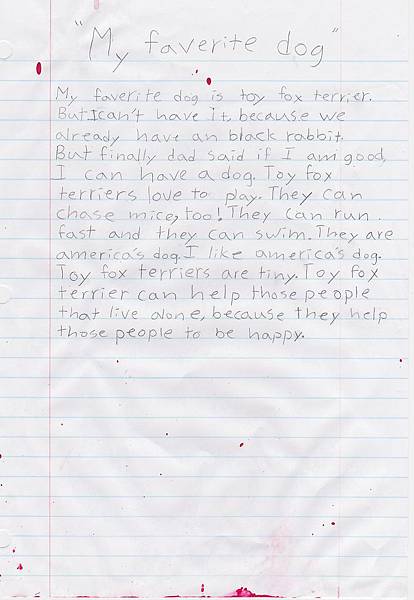 "My faverite dog"
My faverite dog is toy fox terrier.
But I can't have it, because we
already have an black rabbit.
But finally dad said if I am good,
I can have a dog. Toy fox
terriers love to play. They can
chase mice, too! They can run
fast and they can swim. They are
america's dog. I like america's dog.
Toy fox terriers are tiny. Toy fox
terrier can help those people
that live alone, because they help
those people to be happy.